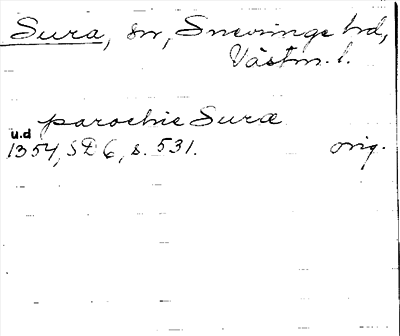 Sura, sn, Snevringe hd,
Västm. l.
parochie Suræ
u.d
1354, SD 6, s. 531. orig.